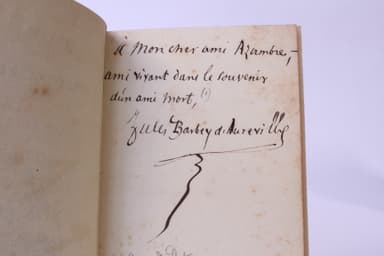 à mon cher ami Azambre,
ami vivant dans le souvenir
d'un ami mort, (1)
Jules Barbey d'Aurevilly